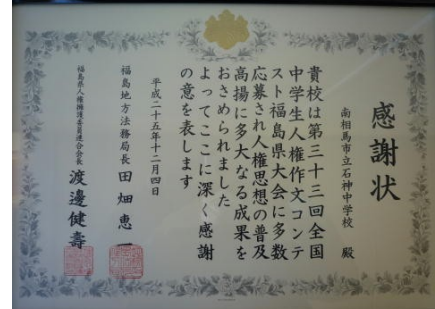 感謝状
南相馬市立石神中学校 殿
貴校は第三十三回全国
中学生人権作文コンテ
スト福島県大会に多数
応募され人権思想の普及
高揚に多大なる成果を
おさめられました
よってここに深く感謝
の意を表します
平成二十五年十二月四日
福島地方法務局長 田畑恵一
福島県人権擁護委員連合会長 渡邊健壽